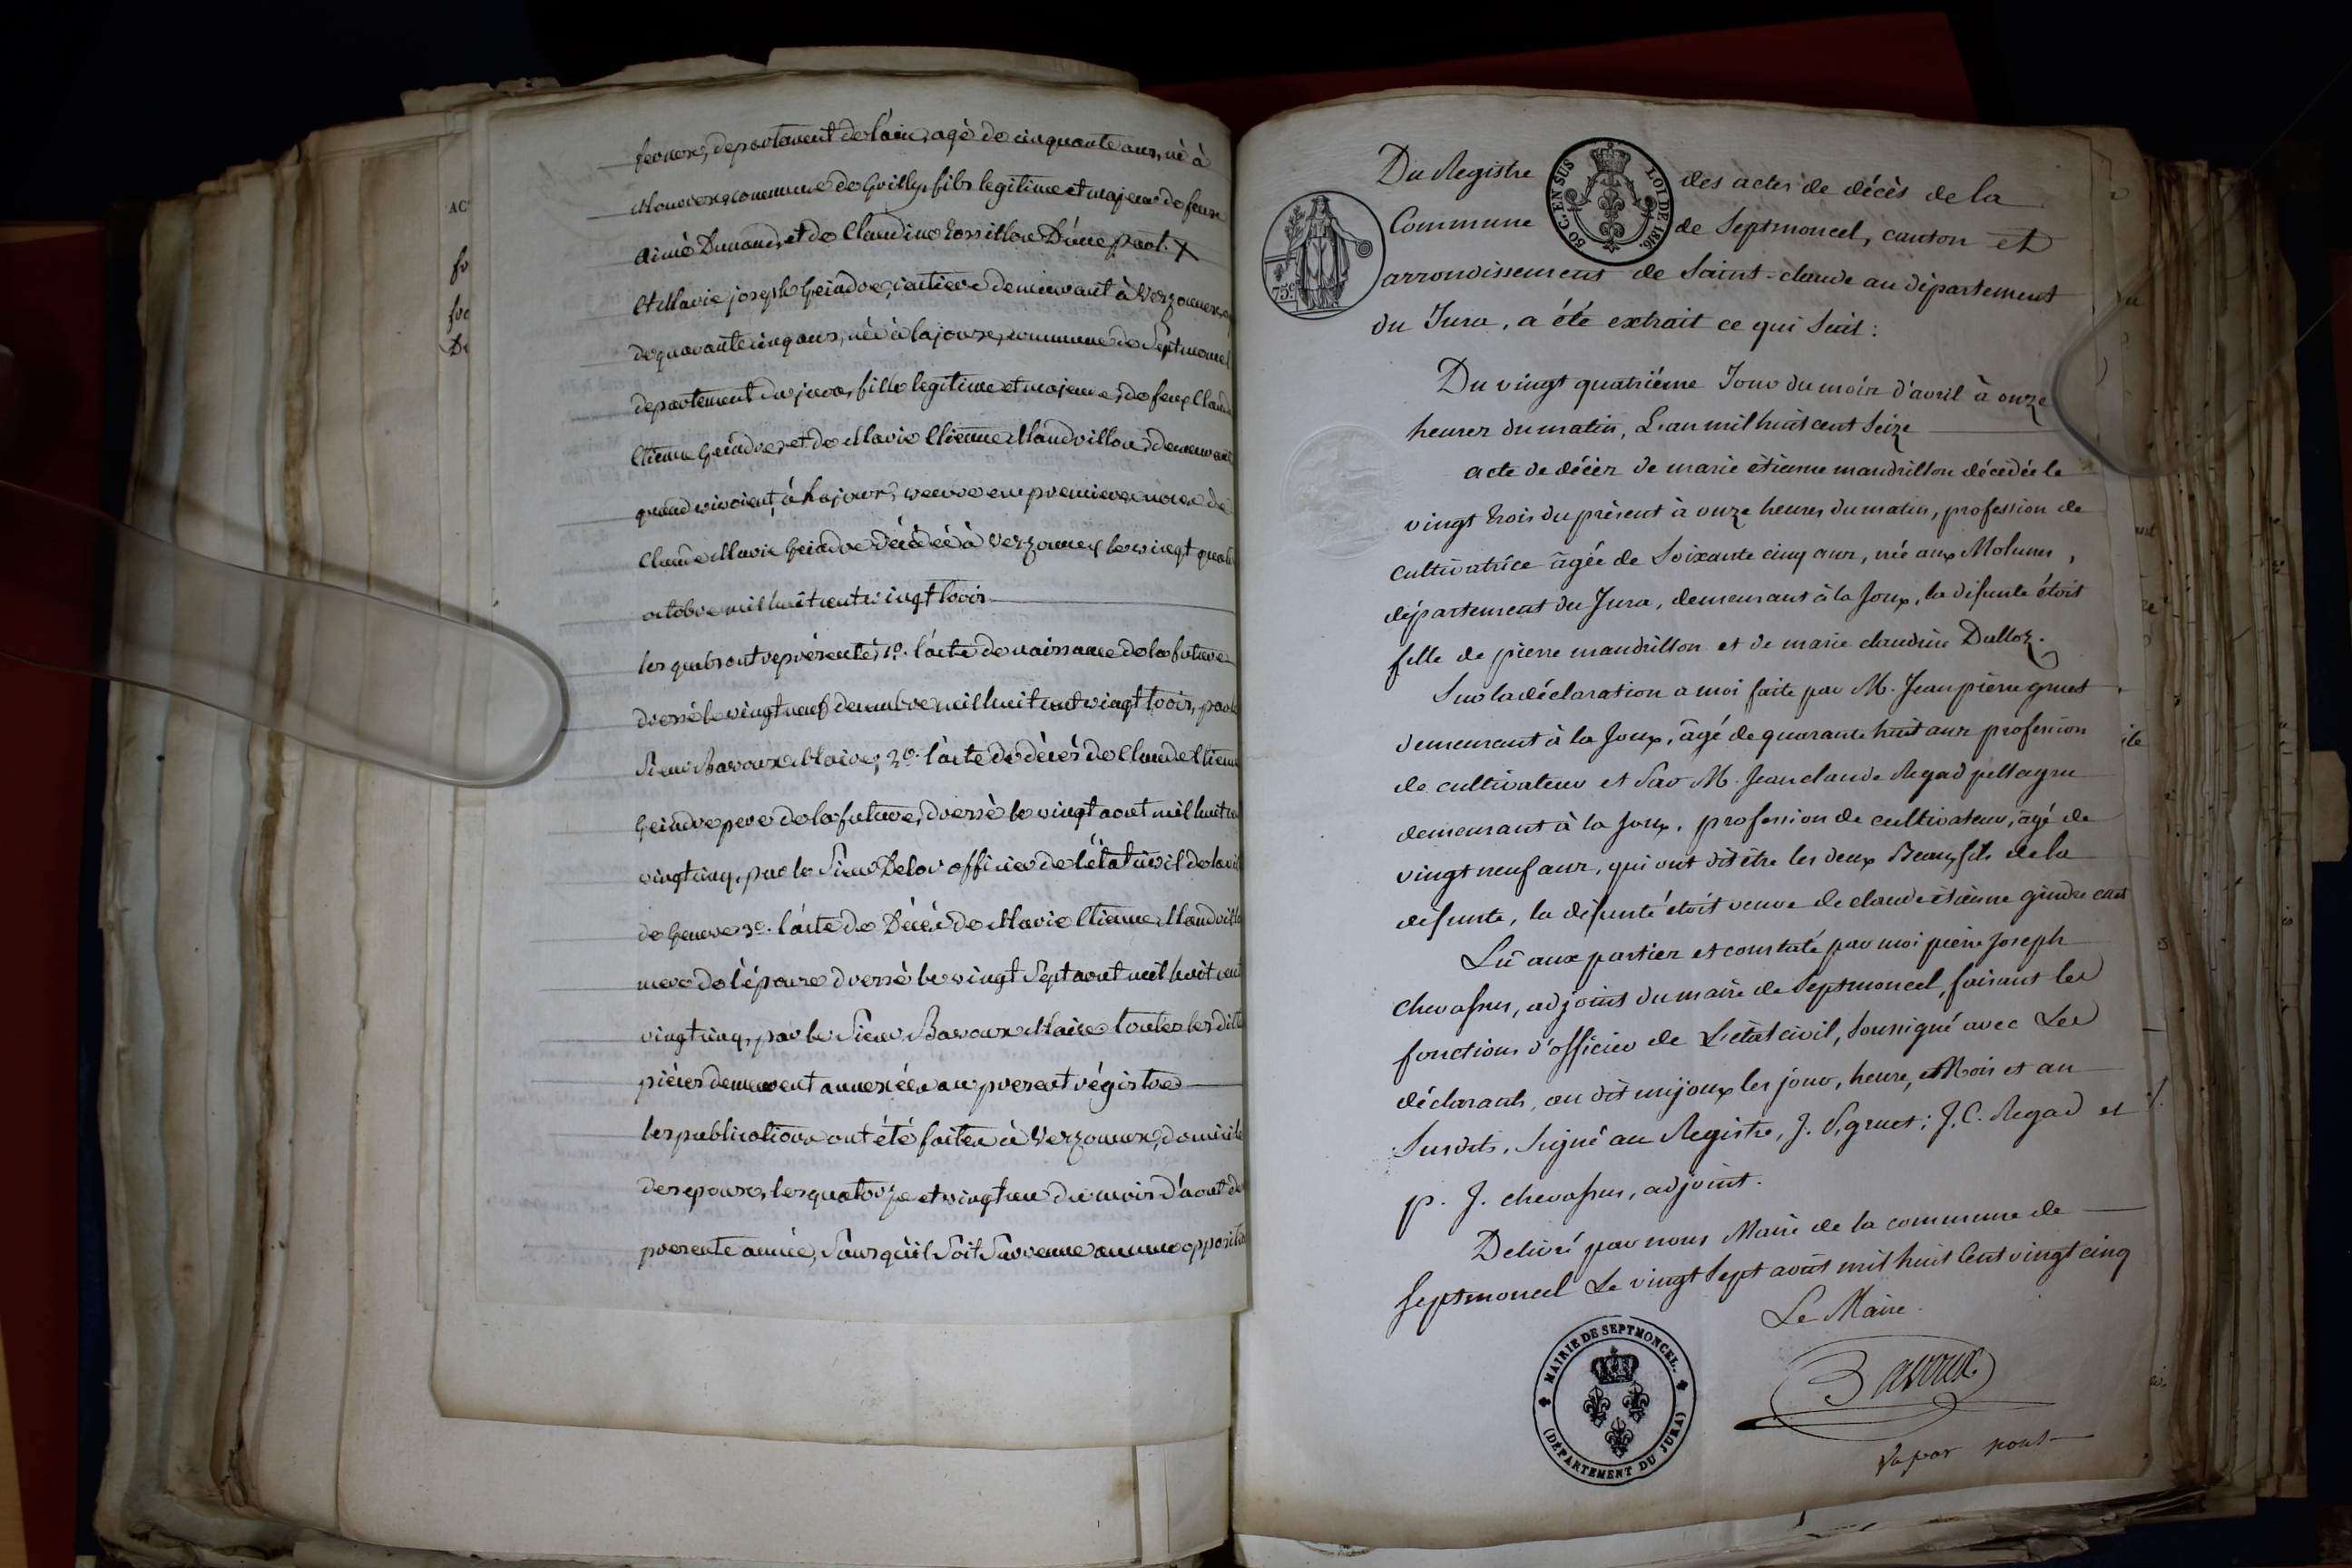 AC
fo
foc
De
fernex, departement de l'ain, agé de cinquante ans, né à
commune de Grilly, fils legitime et majeur de feu
Aimé Dunand, et de Claudine Rossillon D'une part. X
Et Marie joseph Geindre, rentiere demeurant à Verzonnex,
de quarante cinq ans, née à lajoux, commune de Septmoncel
departement du jura, fille legitime et majeure, de feux Claude
Etienne Geindre, et de Marie Etienne Mandrillon, demeurant
quand vivoient, à Lajoux, veuve en premieres noces de
Claude Marie Geindre décédé à Verzonnex le vingt quatre
octobre mil huit cent vingt trois
les quels ont représenté, 1º. l'acte de naissance de la future
dressé le vingt neuf decembre mil huit cent vingt trois, par le
Sieur Bavoux Maire; 2º. l'acte de décès de Claude Etienne
Geindre pere de la future, dressé le vingt aout mil huit cent
vingt cinq, par le Sieur Delor officier de l'état civil de la vil
de Geneve 3º. l'acte de Décès de Marie Etienne Mandrillo
mere de l'épouse dressé le vingt Sept aout mil huit cent
vingt cinq, par le Sieur Bavoux Maire toutes les dit
pièces demeurent annexées au present régistre
les publications ont été faites à Verzonnex, domicile
des epoux, les quatorze et vingt un du mois d'aout de
presente année, Sans qu'il Soit Survenu aucune oppositi
Du Registre des actes de décès de la
50 C. EN SUS LOI DE 1816.
75 c
Commune de Septmoncel, canton et
arrondissement de Saint-claude au département
du Jura, a été extrait ce qui Suit :
Du vingt quatriéme Jour du mois d'avril à onze
heures du matin, L'an mil huit cent Seize
acte de décès de marie étienne mandrillon décédée le
vingt trois du présent à onze heures du matin, profession de
cultivatrice âgée de Soixante cinq ans, née aux Molunes,
département du Jura, demeurant à la Joux, la défunte étoit
fille de pierre mandrillon et de marie claudine Dalloz.
Sur la déclaration a moi faite par M. Jean pierre gruet
demeurant à la Joux, âgé de quarante huit ans profession
de cultivateur et Par M. Jean claude Regad pellagru
demeurant à la Joux, profession de cultivateur, âgé de
vingt neuf ans, qui ont dit être les deux Beaux fils de la
défunte, la défunte étoit veuve de claude étienne gindre
Lû aux parties et constaté par moi pierre Joseph
chevassus, adjoint du maire de Septmoncel, faisant les
fonctions d'officier de L'état civil, Soussigné avec Les
déclarants, au dit mijoux les jour, heure, et Mois et an
Susdits. Signé au Registre, J. P. gruet; J. C. Regad et
p. J. chevassus, adjoint.
Delivré par nous Maire de la commune de
Septmoncel Le vingt Sept août mil huit Cent vingt cinq
Le Maire.
Bavoux
MAIRIE DE SEPTMONCEL. (DÉPARTEMENT DU JURA)
Vu par nous